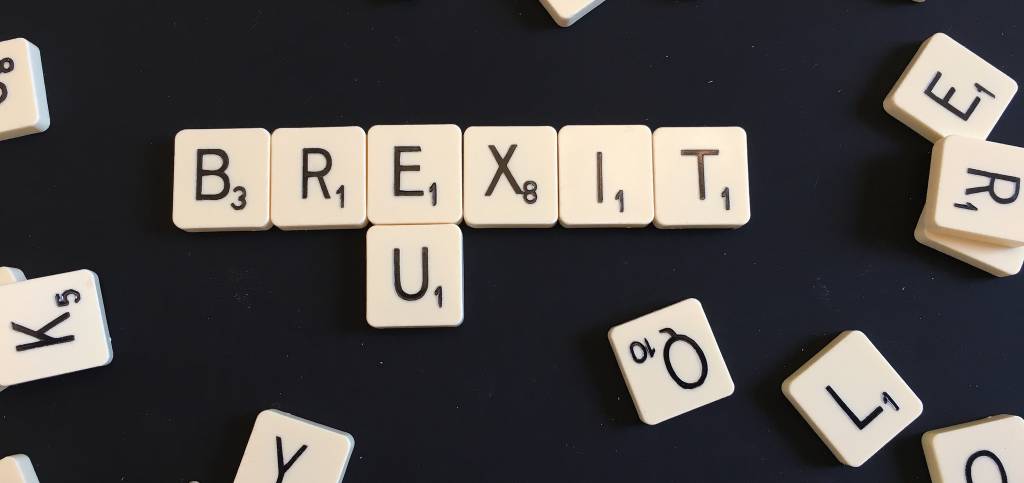 8
E1
B3 R1 E1 X8 I1 T1
R1
U1
K5
Q10
L1
Y
O